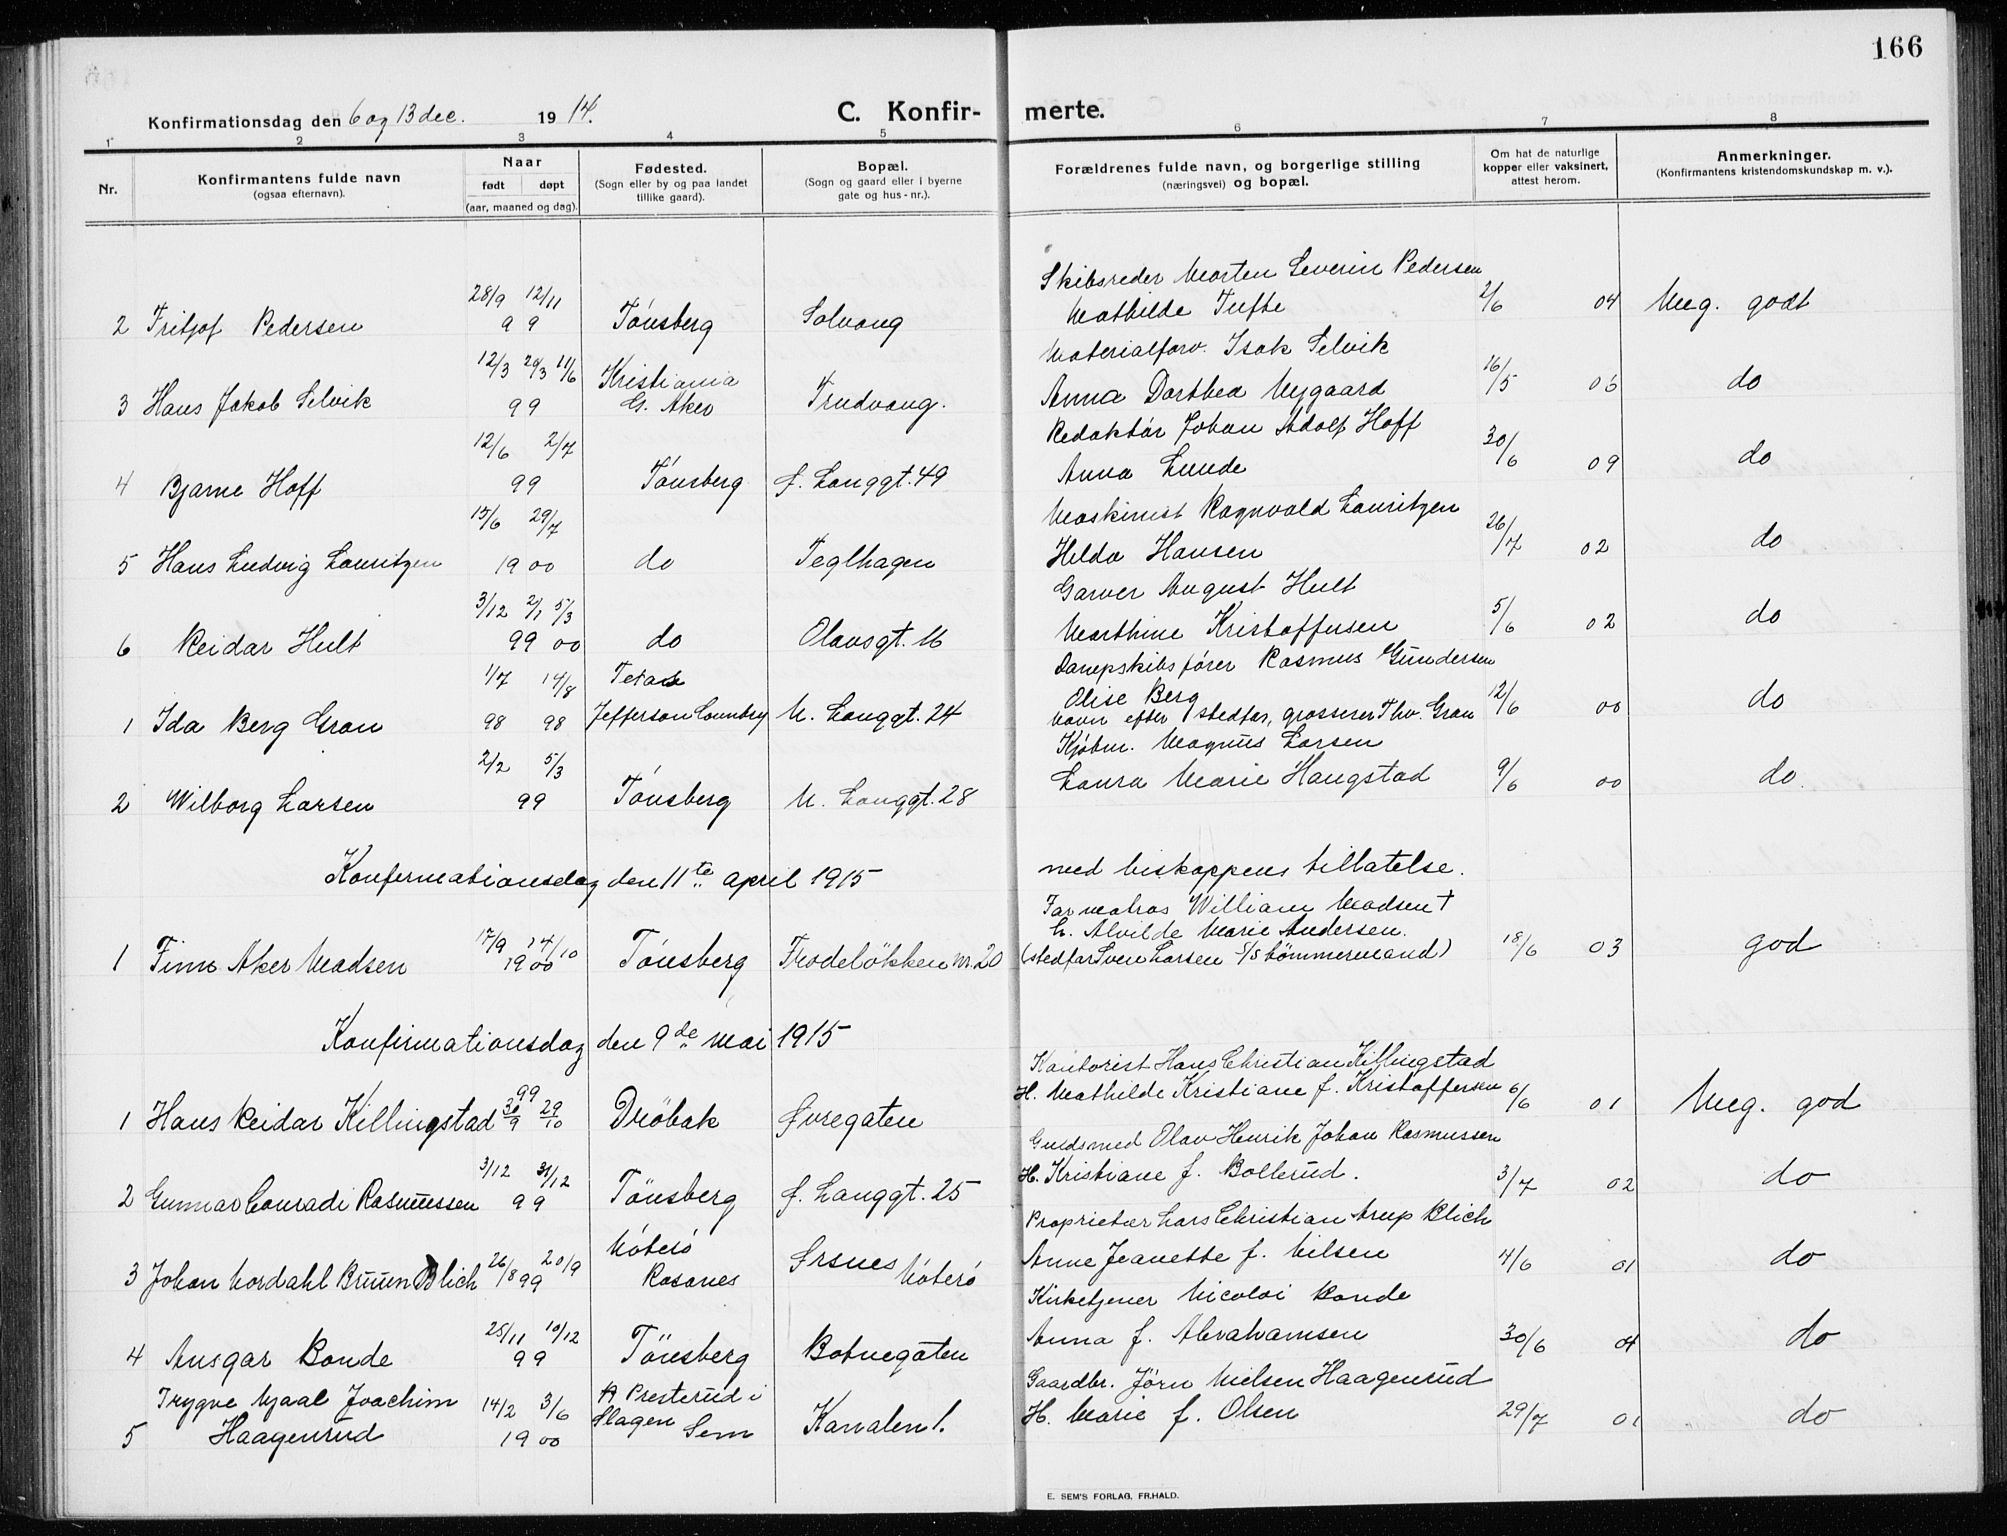 166
Konfirmationsdag den 6 og 13 dec. 1914.
C. Konfir- merte.
1 2 3 4 5 6 7 8
Nr.
Konfirmantens fulde navn
(ogsaa efternavn).
Naar
født døpt
(aar, maaned og dag).
Fødested.
(Sogn eller by og paa landet
tillike gaard).
Bopæl.
(Sogn og gaard eller i byerne
gate og hus-nr.).
Forældrenes fulde navn, og borgerlige stilling
(næringsvei) og bopæl.
Om hat de naturlige
kopper eller vaksinert,
attest herom.
Anmerkninger.
(Konfirmantens kristendomskundskap m. v.).
Skibsreder Morten Severin Pedersen
28/9 12/11
2 Fritjof Pedersen 99 Tönsberg Solvang Mathilde Tufte 2/6 04 Meg. godt
Materialforv. Isak Selvik
12/3 29/3 11/6 Kristiania
3 Hans Jakob Selvik 99 G. Aker Trudvang. Anna Dorthea Nygaard 16/5 06 do
Redaktör Johan Adolf Hoff
12/6 2/7
4 Bjarne Hoff 99 Tönsberg f. Langgt. 49 Anna Lunde 30/6 09 do
Maskinist Ragnvald Lauritzen
15/6 29/7
5 Hans Ludvig Lauritzen 1900 do Teglhagen Hilda Hansen 26/7 02 do
Garver August Hult
3/12 2/1 5/3
6 Reidar Hult 99 00 do Olavsgt. 16 Marthine Kristoffersen 5/6 02 do
Dampskibsförer Rasmus Gundersen
1/7 14/8 Texas
Olise Berg
1 Ida Berg Gran 98 98 Jefferson Countery N. Langgt. 24 navn efter stedfar, grosserer Thv. Gran 12/6 00 do
Kjöbm. Magnus Larsen
2/2 5/3
2 Wilborg Larsen 99 Tönsberg N. Langgt. 28 Laura Marie Haugstad 9/6 00 do
Konfirmationsdag den 11te april 1915 med biskoppens tillatelse.
Far matros William Madsen †
H. Alvilde Marie Andersen.
17/9 14/10
1 Finn Aker Madsen 1900 Tönsberg Frodelökken nr. 20 (stedfar Sven Larsen S/S tömmermand) 18/6 03 god
Konfirmationsdag den 9de mai 1915
Kontorist Hans Christian Killingstad
99
1 Hans Reidar Killingstad 30/9 29/10 Dröbak Øvregaten H. Mathilde Kristiane f. Kristoffersen 6/6 01 Meg. god
Guldsmed Olav Henrik Johan Rasmussen
3/12 31/12
2 Gunnar Conradi Rasmussen 99 Tönsberg f. Langgt. 25 H. Kristiane f. Bollerud. 3/7 02 do
Proprietær Lars Christian Arup Blich
Nöterö
3 Johan Nordahl Bruun Blich 26/8 99 20/9 Rosanes Örsnes Nöterö Anne Jeanette f. Nilsen 4/6 01 do
Kirketjener Nicolai Bonde
25/11 10/12
4 Ansgar Bonde 99 Tönsberg Botnegaten Anna f. Abrahamsen 30/6 04 do
Gaardbr. Jörn Nielsen Haagenrud
Trygve Njaal Joachim 14/2 3/6 Presterud i
5 Haagenrud 1900 Slagen Sem Kanalen 1. H. Marie f. Olsen 29/7 01 do
E. SEM'S FORLAG, FR.HALD.